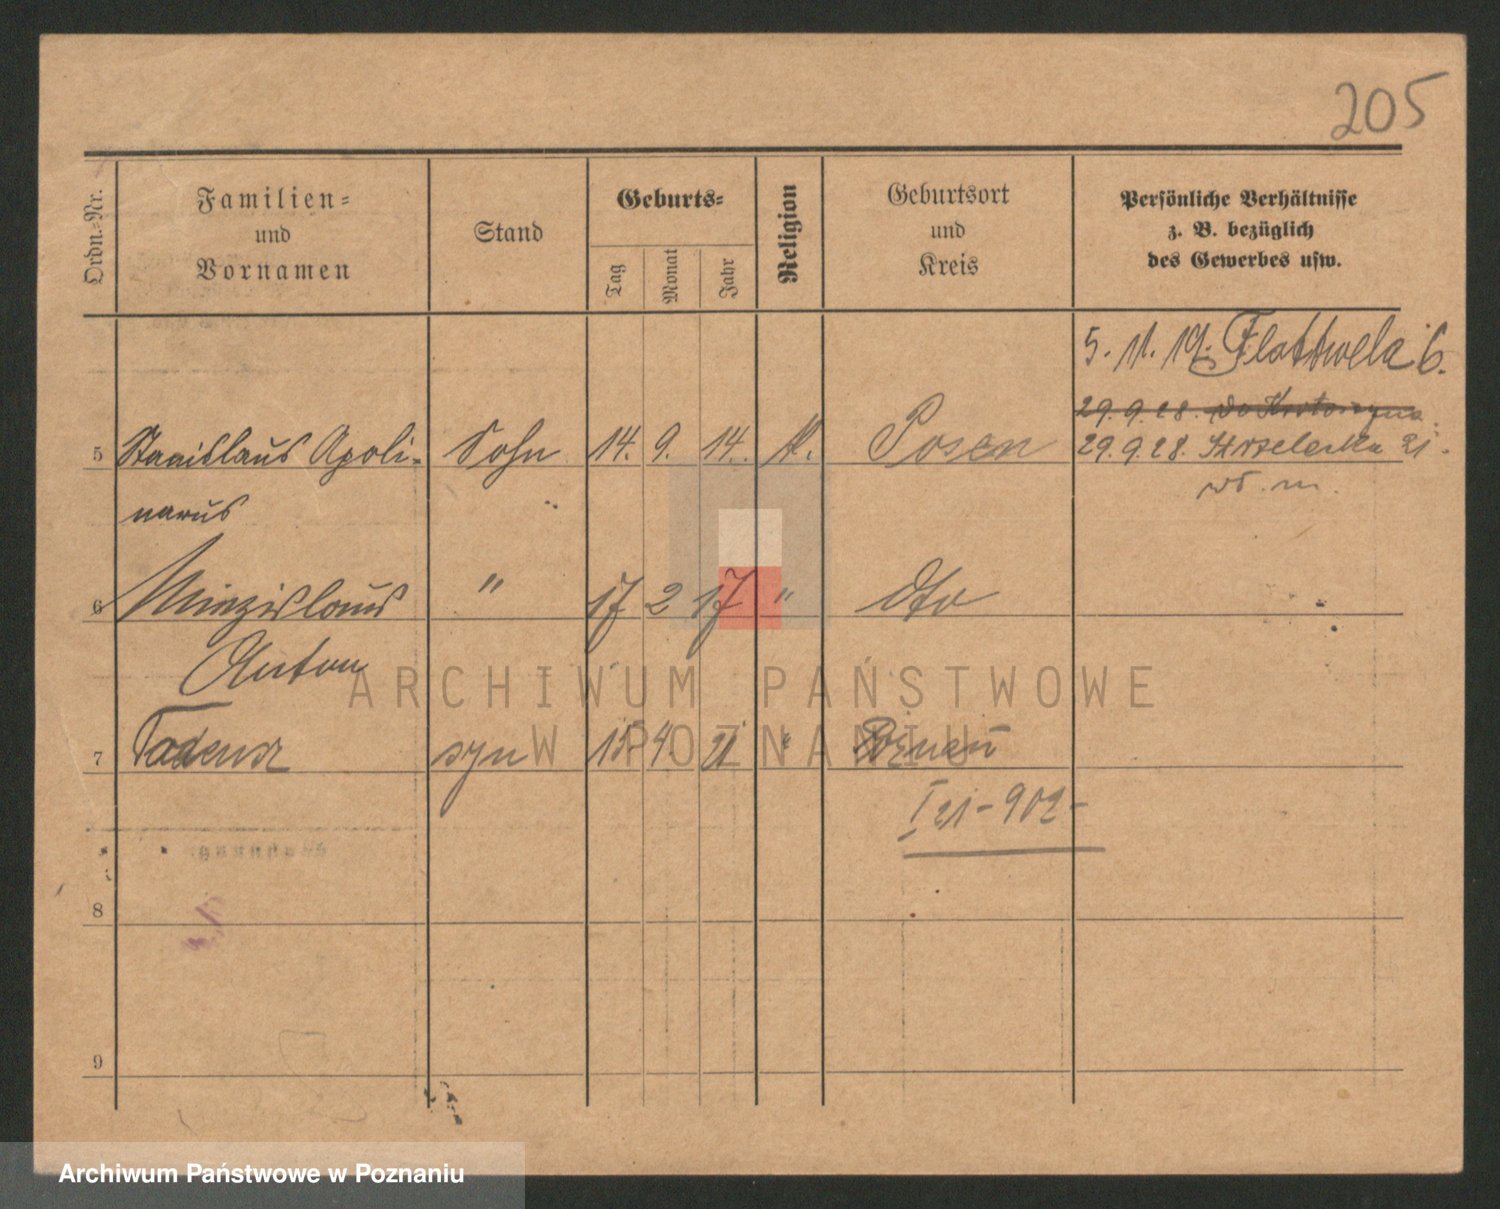 205
Ordn.-Nr.
Familien-
und
Vornamen
Stand
Geburts-
Tag
Monat
Jahr
Religion
Geburtsort
und
Kreis
Persönliche Verhältnisse
z. B. bezüglich
des Gewerbes usw.
5. 11. 19. Flottwela 6.
29.9.28. do Krotoszyna
5 Stanislaus Apoli- Sohn 14. 9. 14. K. Posen 29.9.28. Strzelecka 21.
narus
6 Miezislaus " 17 2 17 " dto
Anton
ARCHIWUM PAŃSTWOWE
W POZNANIU
7 Tadeusz syn 15 4 21 " Poznań
I 21-902-
8
9
Archiwum Państwowe w Poznaniu